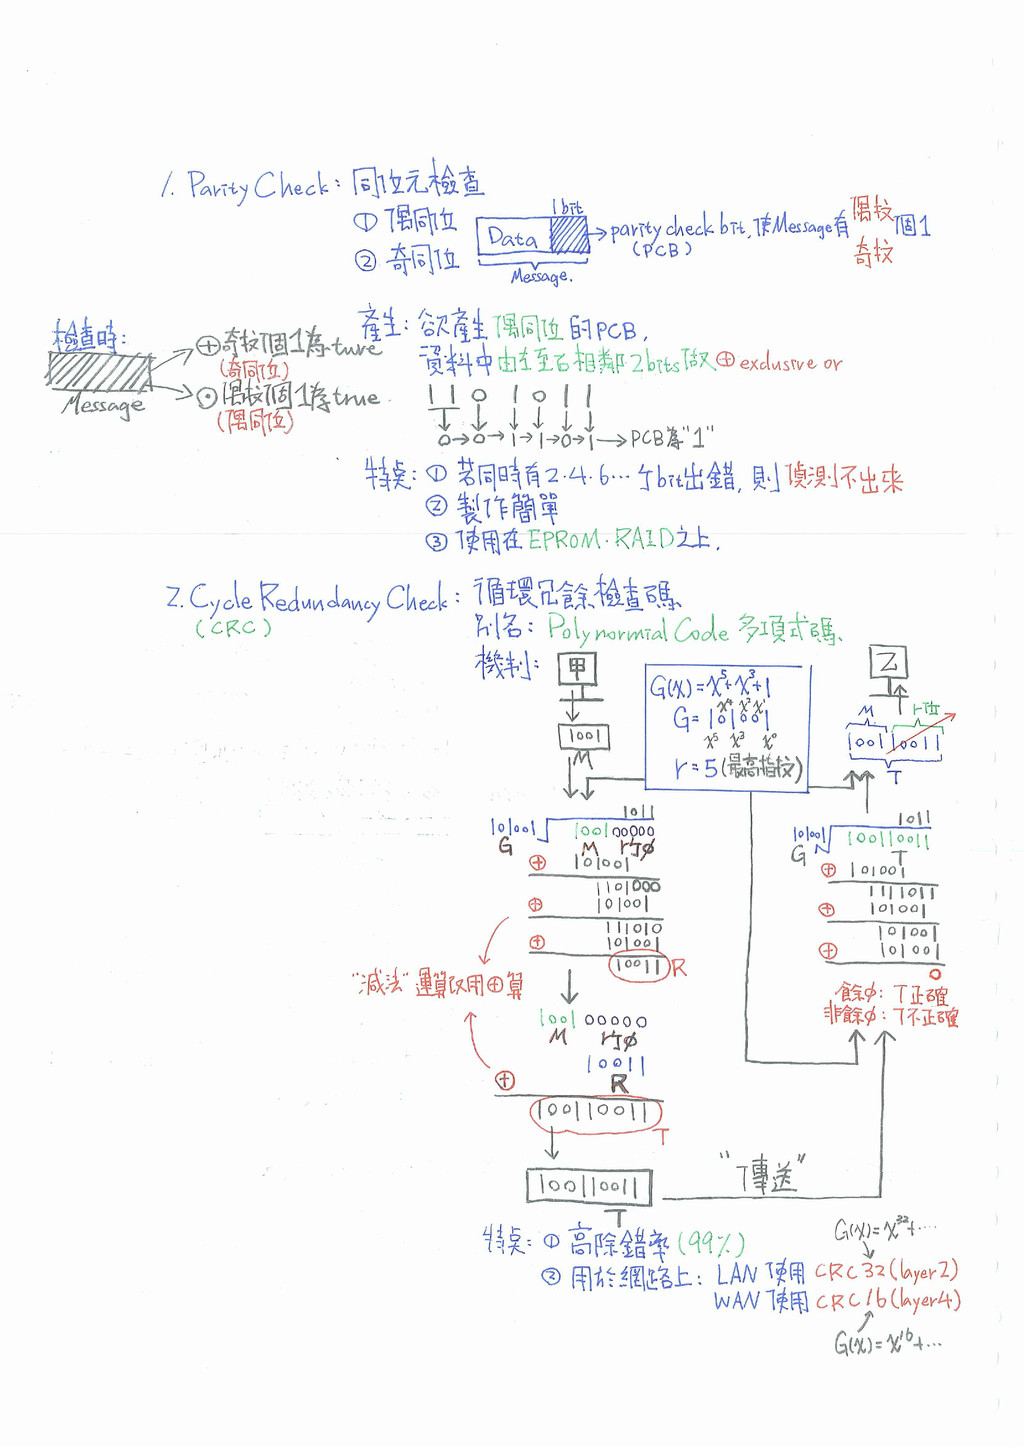 1. Parity Check: 同位元檢查
① 偶同位
② 奇同位
1bit
Data
Message.
parity check bit, 使Message有偶數個1
(PCB)
奇數
檢查時:
Message
⊕奇數個1為ture
(奇同位)
⊙偶數個1為true
(偶同位)
產生: 欲產生偶同位的PCB,
資料中由左至右相鄰2bits做⊕exclusive or
1 1 0 1 0 1 1
0→0→1→1→0→1→PCB為"1"
特点: ① 若同時有2.4.6…个bit出錯, 則偵測不出來
② 製作簡單
③ 使用在EPROM.RAID之上.
2. Cycle Redundancy Check: 循環冗餘檢查碼
(CRC)
別名: Polynormial Code 多項式碼
機制:
甲
1001
M
G(x)=x⁵+x³+1
x⁴ x² x¹
G=101001
x⁵ x³ x⁰
r=5(最高指数)
乙
M r位
1001 10011
T
1011
101001 1001 00000
G M r个φ
⊕ 101001
1101000
⊕ 101001
111010
⊕ 101001
10011 R
"減法"運算改用⊕算
1001 00000
M r个φ
10011
R
⊕
100110011
T
100110011
T
"T傳送"
1011
101001 100110011
G T
⊕ 101001
1111011
⊕ 101001
101001
⊕ 101001
0
餘φ: T正確
非餘φ: T不正確
特点: ① 高除錯率(99%)
② 用於網路上: LAN 使用 CRC32(layer2)
WAN 使用 CRC16(layer4)
G(x)=x³²+…
G(x)=x¹⁶+…